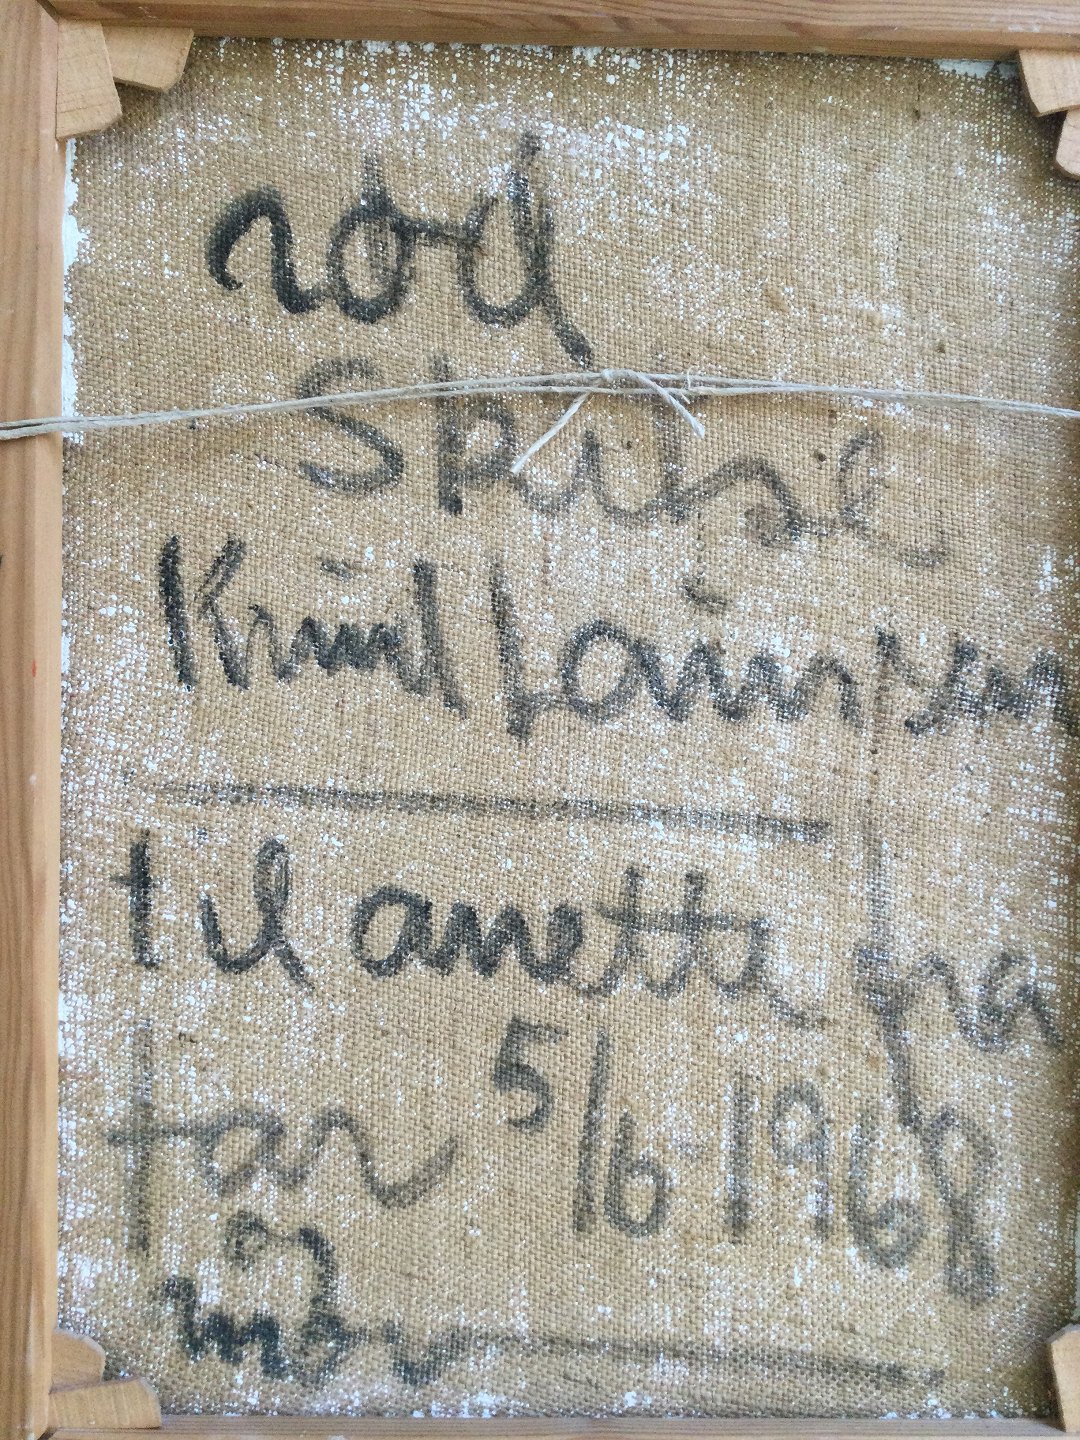 rød
Skitse
Knud
til anette fra
far 5/6 1968
mor